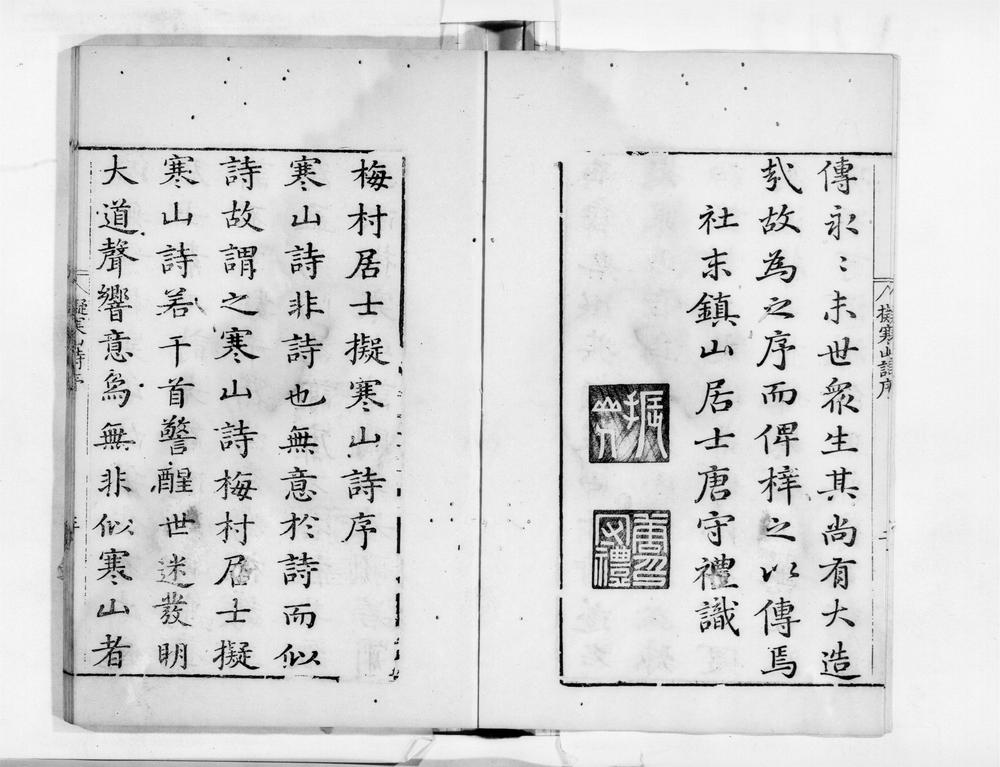 傳永〻末世眾生其尚有大造
哉故為之序而俾梓之以傳焉
社末鎮山居士唐守禮識
唐守禮
擬寒山詩序
梅村居士擬寒山詩序
寒山詩非詩也無意於詩而似
詩故謂之寒山詩梅村居士擬
寒山詩若干首警醒世迷發明
大道聲響意爲無非似寒山者
擬寒山詩序